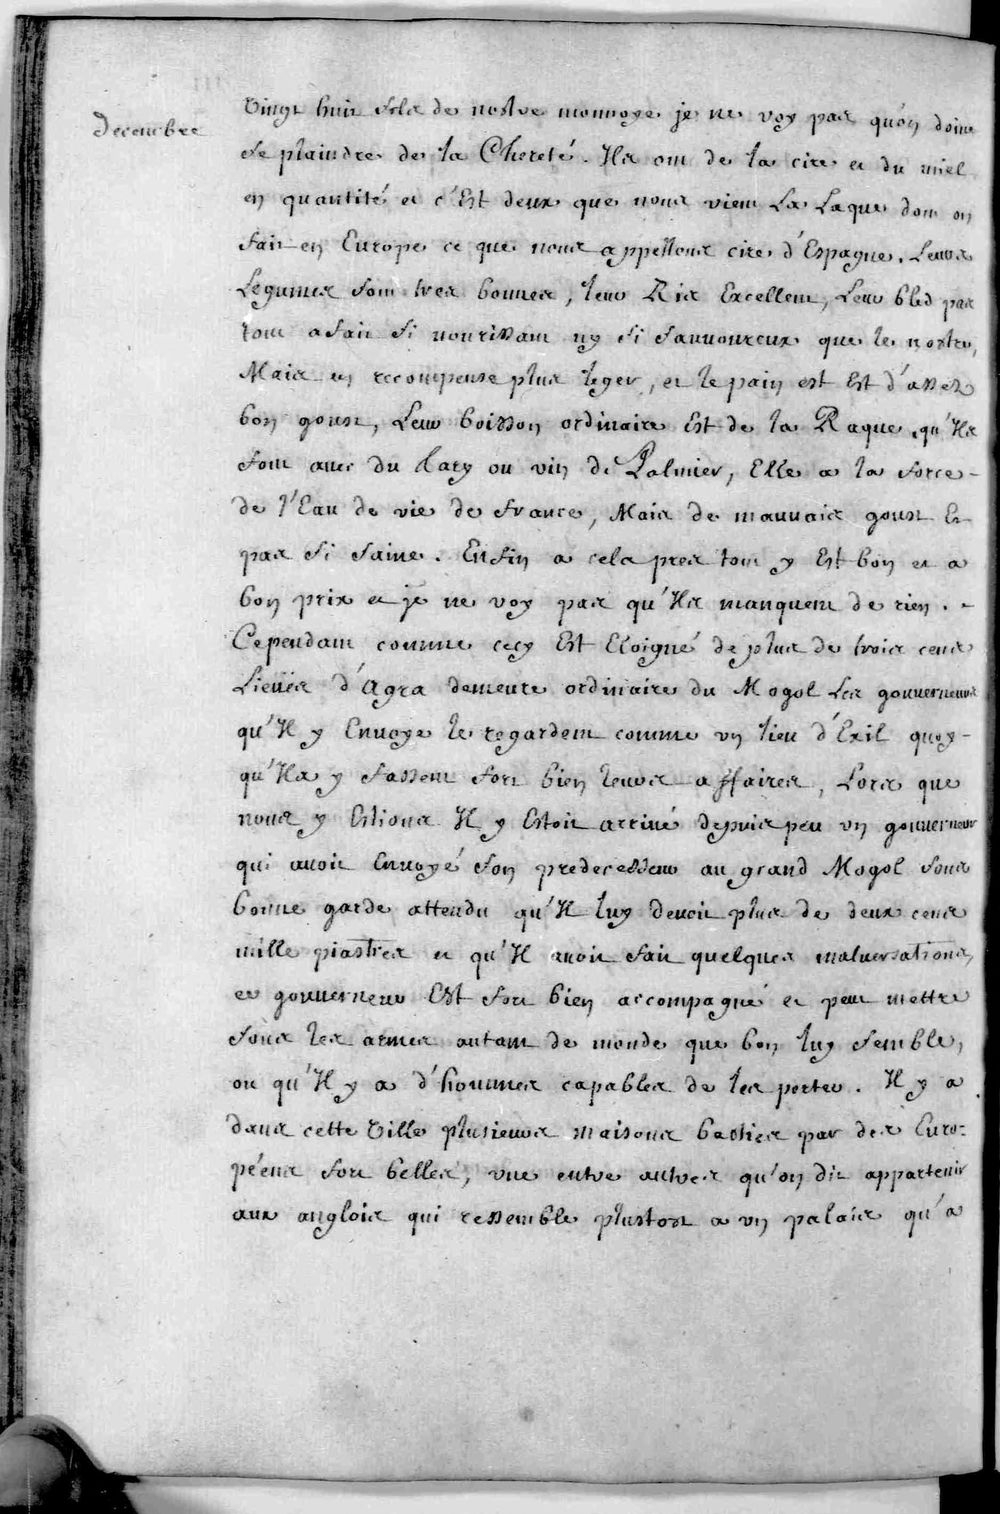 decembre
Vingt huit sols de nostre monnoye je ne voy pas qu'on doive
se plaindre de la Chereté. Ils ont de la cire et du miel
en quantité et c'Est deux que nous vient La Laque dont on
fait en Europe ce que nous appellons cire d'Espagne. Leurs
Legumes sont tres bonnes, leur Ris Excellent, Leur bled pas
tout a fait si nourissant ny si sauuoureux que le nostre,
Mais en recompense plus leger, et le pain est Est d'assez
bon goust, Leur boisson ordinaire Est de la Raque, qu'Ils
font auec du tary ou vin de Palmier, Elle a la force
de l'Eau de vie de france, Mais de mauuais goust Et
pas si saine. Enfin a cela pres tout y Est bon et a
bon prix et je ne voy pas qu'Ils manquent de rien.
Cependant comme cecy Est Eloigné de plus de trois cens
Lieües d'Agra demeure ordinaire du Mogol Les gouverneurs
qu'Il y Envoye le regardent comme un lieu d'Exil quoy-
qu'Ils y fassent fort bien leurs affaires, Lors que
nous y Estions Il y Estoit arriué depuis peu un gouuerneur
qui auoit Envoyé son predecesseur au grand Mogol sous
bonne garde attendu qu'Il luy deuoit plus de deux cens
mille piastres et qu'Il auoit fait quelques maluersations,
ce gouuerneur Est fort bien accompagné et peut mettre
sous les armes autant de monde que bon luy semble,
ou qu'Il y a d'hommes capables de les porter. Il y a
dans cette Ville plusieurs maisons basties par des Euro-
péens fort belles, une entre autres qu'on dit appartenir
aux anglois qui ressemble plustost a un palais qu'a